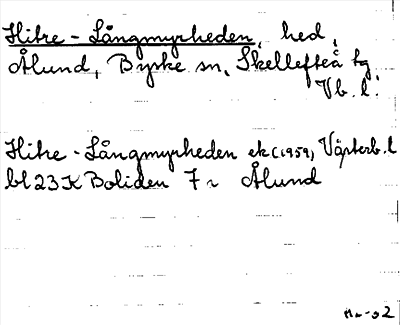 Hitre - Långmyrheden, hed,
Ålund, Byske sn, Skellefteå tg
Vb. l.
Hitre - Långmyrheden ek (1959) Västerb. l
bl 23 K Boliden 7 Ålund